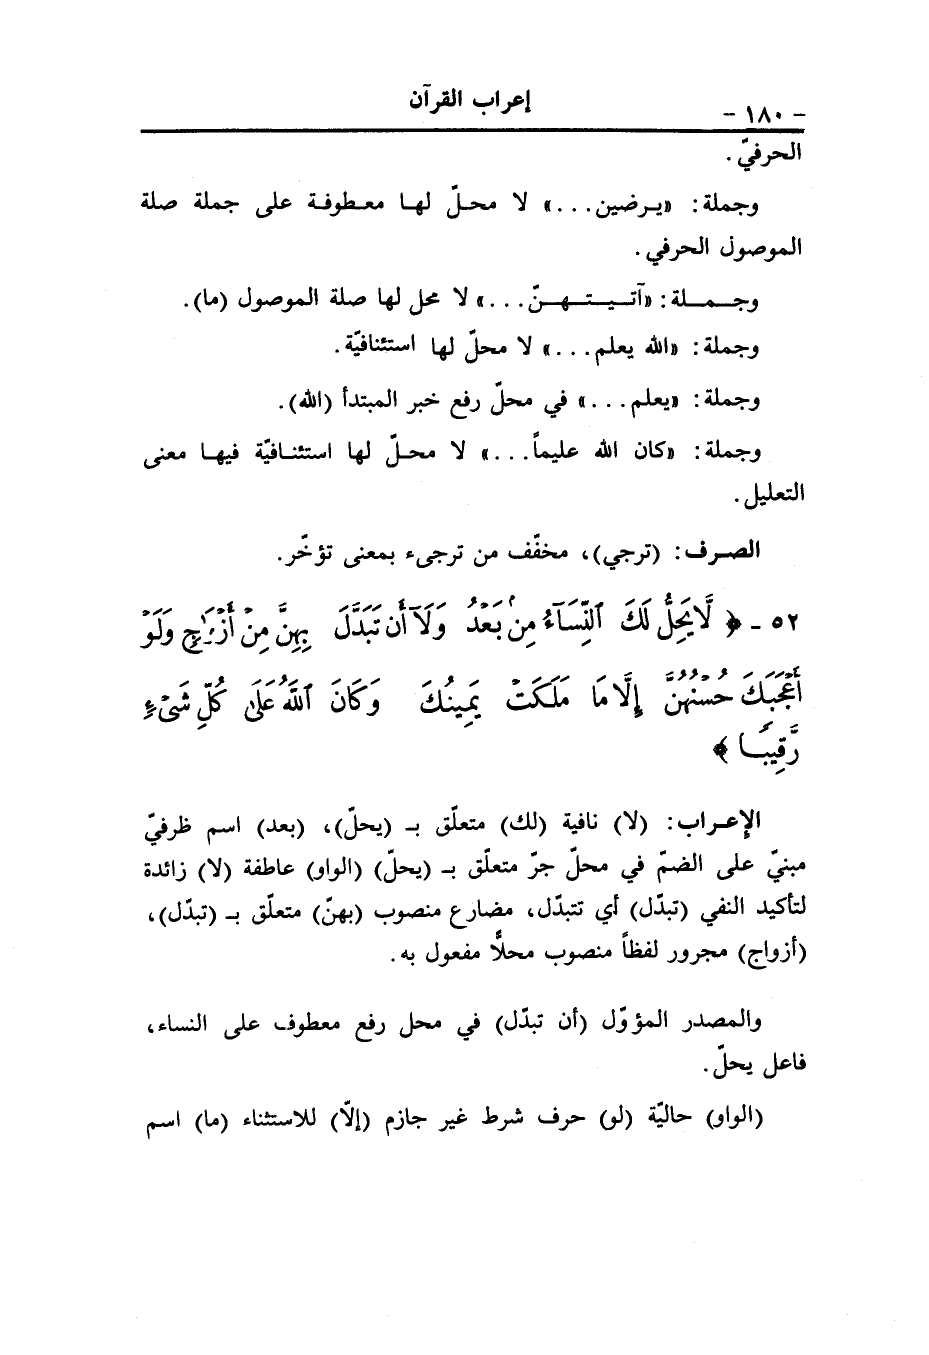 إعراب القرآن
- ١٨٠ -
الحرفيّ .
وجملة : «يـرضين . . .» لا محـلّ لهـا معـطوفـة على جملة صلة
الموصول الحرفي .
وجـمـلة : «آتـيـتـهـنّ . . .» لا محل لها صلة الموصول (ما) .
وجملة : «الله يعلم . . .» لا محلّ لها استئنافيّة .
وجملة : «يعلم . . .» في محلّ رفع خبر المبتدأ (الله) .
وجملة : «كان الله عليماً . . .» لا محـلّ لها استئنـافيّة فيهـا معنى
التعليل .
الصـرف : (ترجي) ، مخفّف من ترجىء بمعنى تؤخّر .
٥٢ - ﴿ لَّا يَحِلُّ لَكَ ٱلنِّسَآءُ مِنۢ بَعْدُ وَلَآ أَن تَبَدَّلَ بِهِنَّ مِنْ أَزْوَٰجٍ وَلَوْ
أَعْجَبَكَ حُسْنُهُنَّ إِلَّا مَا مَلَكَتْ يَمِينُكَ وَكَانَ ٱللَّهُ عَلَىٰ كُلِّ شَىْءٍ
رَّقِيبًا ﴾
الإعـراب : (لا) نافية (لك) متعلّق بـ (يحلّ) ، (بعد) اسم ظرفيّ
مبنيّ على الضمّ في محلّ جرّ متعلّق بـ (يحلّ) (الواو) عاطفة (لا) زائدة
لتأكيد النفي (تبدّل) أي تتبدّل ، مضارع منصوب (بهنّ) متعلّق بـ (تبدّل) ،
(أزواج) مجرور لفظاً منصوب محلاًّ مفعول به .
والمصدر المؤوّل (أن تبدّل) في محل رفع معطوف على النساء ،
فاعل يحلّ .
(الواو) حاليّة (لو) حرف شرط غير جازم (إلّا) للاستثناء (ما) اسم